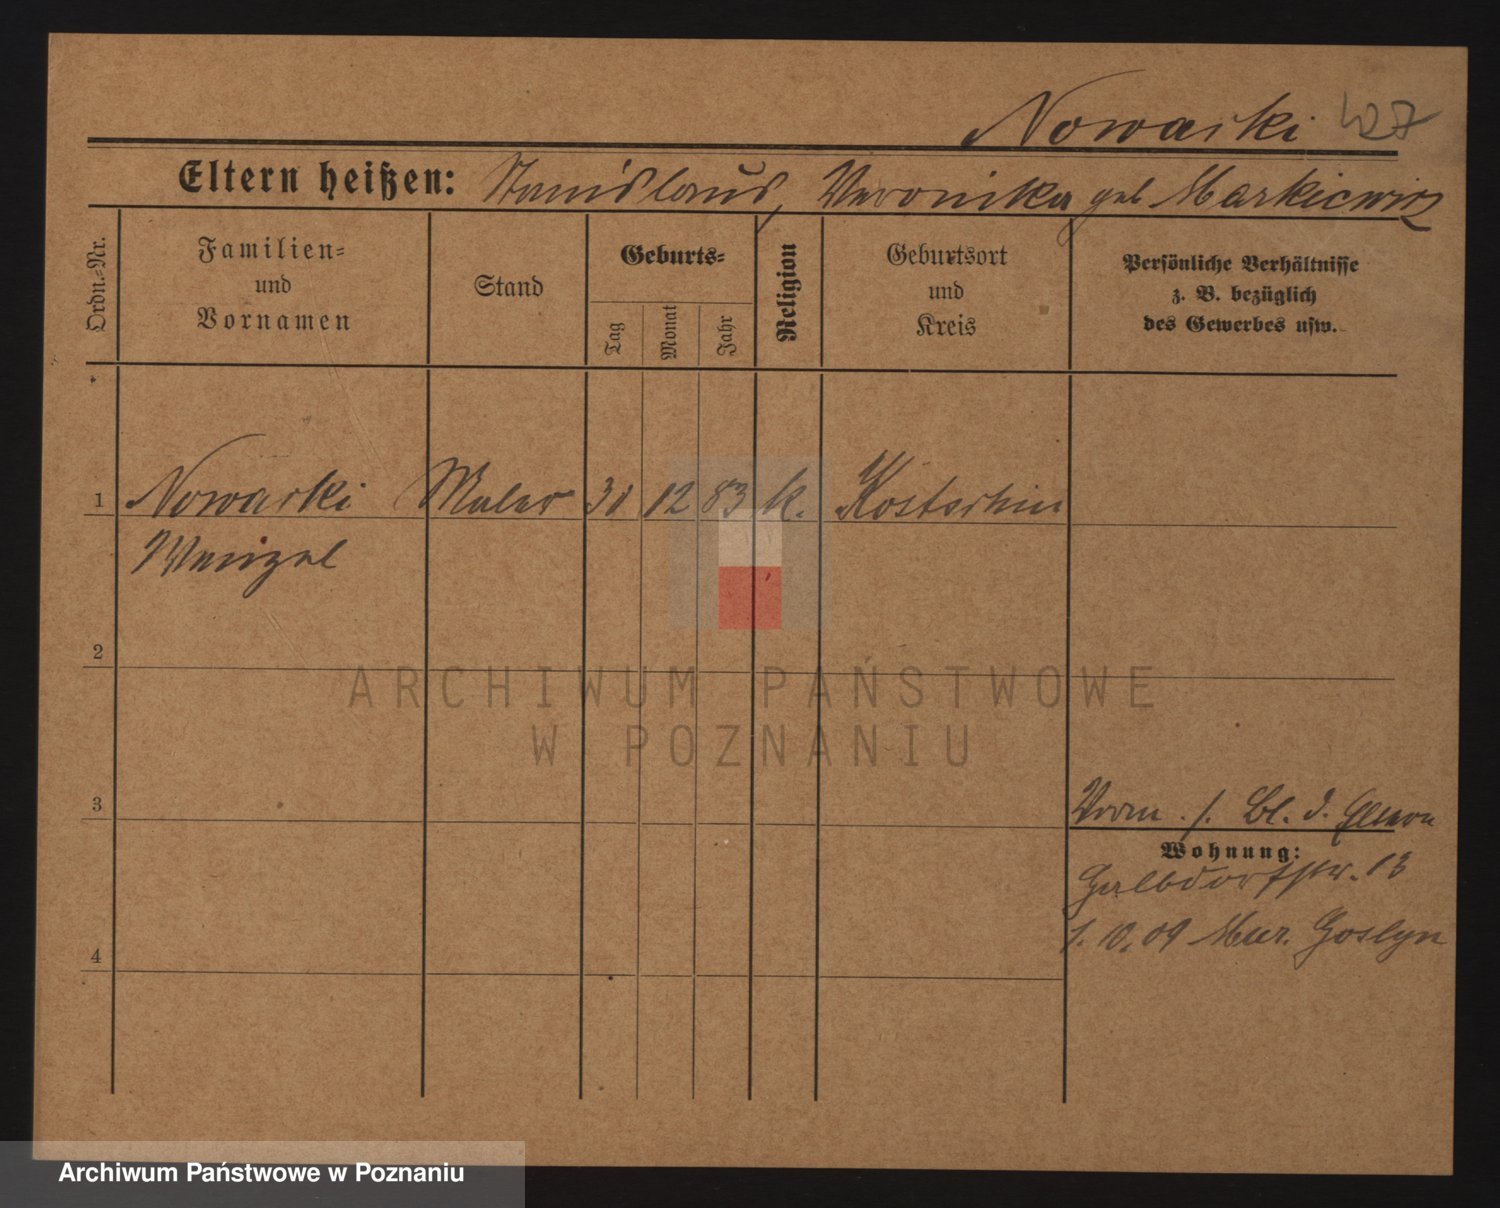 Nowacki 427
Eltern heißen: Stanislaus, Veronika geb Markiewicz
Ordn.=Nr.
Familien=
und
Vornamen
Stand
Geburts=
Tag
Monat
Jahr
Religion
Geburtsort
und
Kreis
Persönliche Verhältnisse
z. B. bezüglich
des Gewerbes usw.
1 Nowacki Maler 31 12 83 k. Kostschin
Wenzel
2
3
Vorm. s. Bl. d. Eltern
Wohnung:
13
4
1. 10. 09 Mur. Goslyn
ARCHIWUM PAŃSTWOWE
W POZNANIU
Archiwum Państwowe w Poznaniu